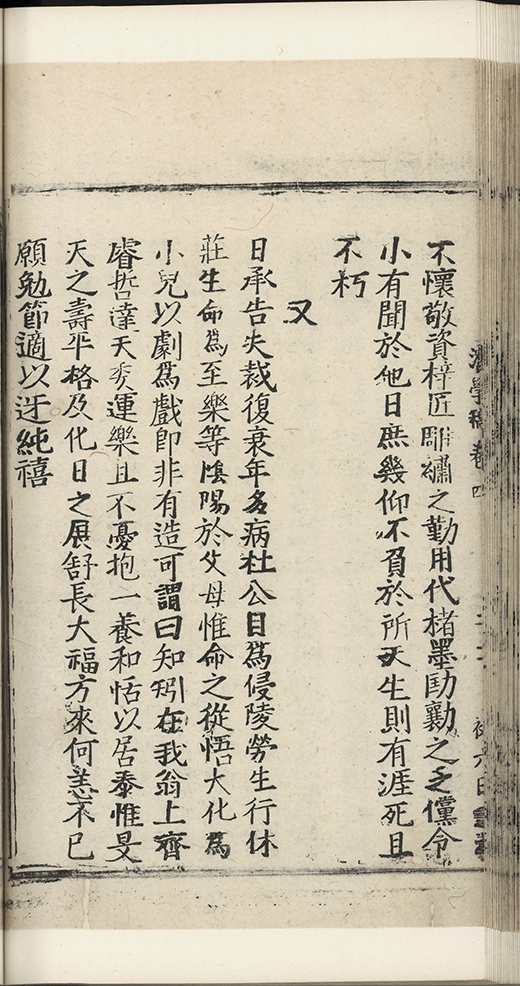 濟學稿卷四
不懷敬資梓匠雕繡之勤用代楮墨劻勷之乏儻令
小有聞於他日庶幾仰不負於所天生則有涯死且
不朽
又
日承告失裁復衰年多病杜公目為侵陵勞生行休
莊生命為至樂等陰陽於父母惟命之從悟大化為
小兒以劇為戲即非有造可謂曰知矧在我翁上齊
睿哲達天委運樂且不憂抱一養和恬以居泰惟旻
天之壽平格及化日之展舒長大福方來何恙不已
願勉節適以迓純禧